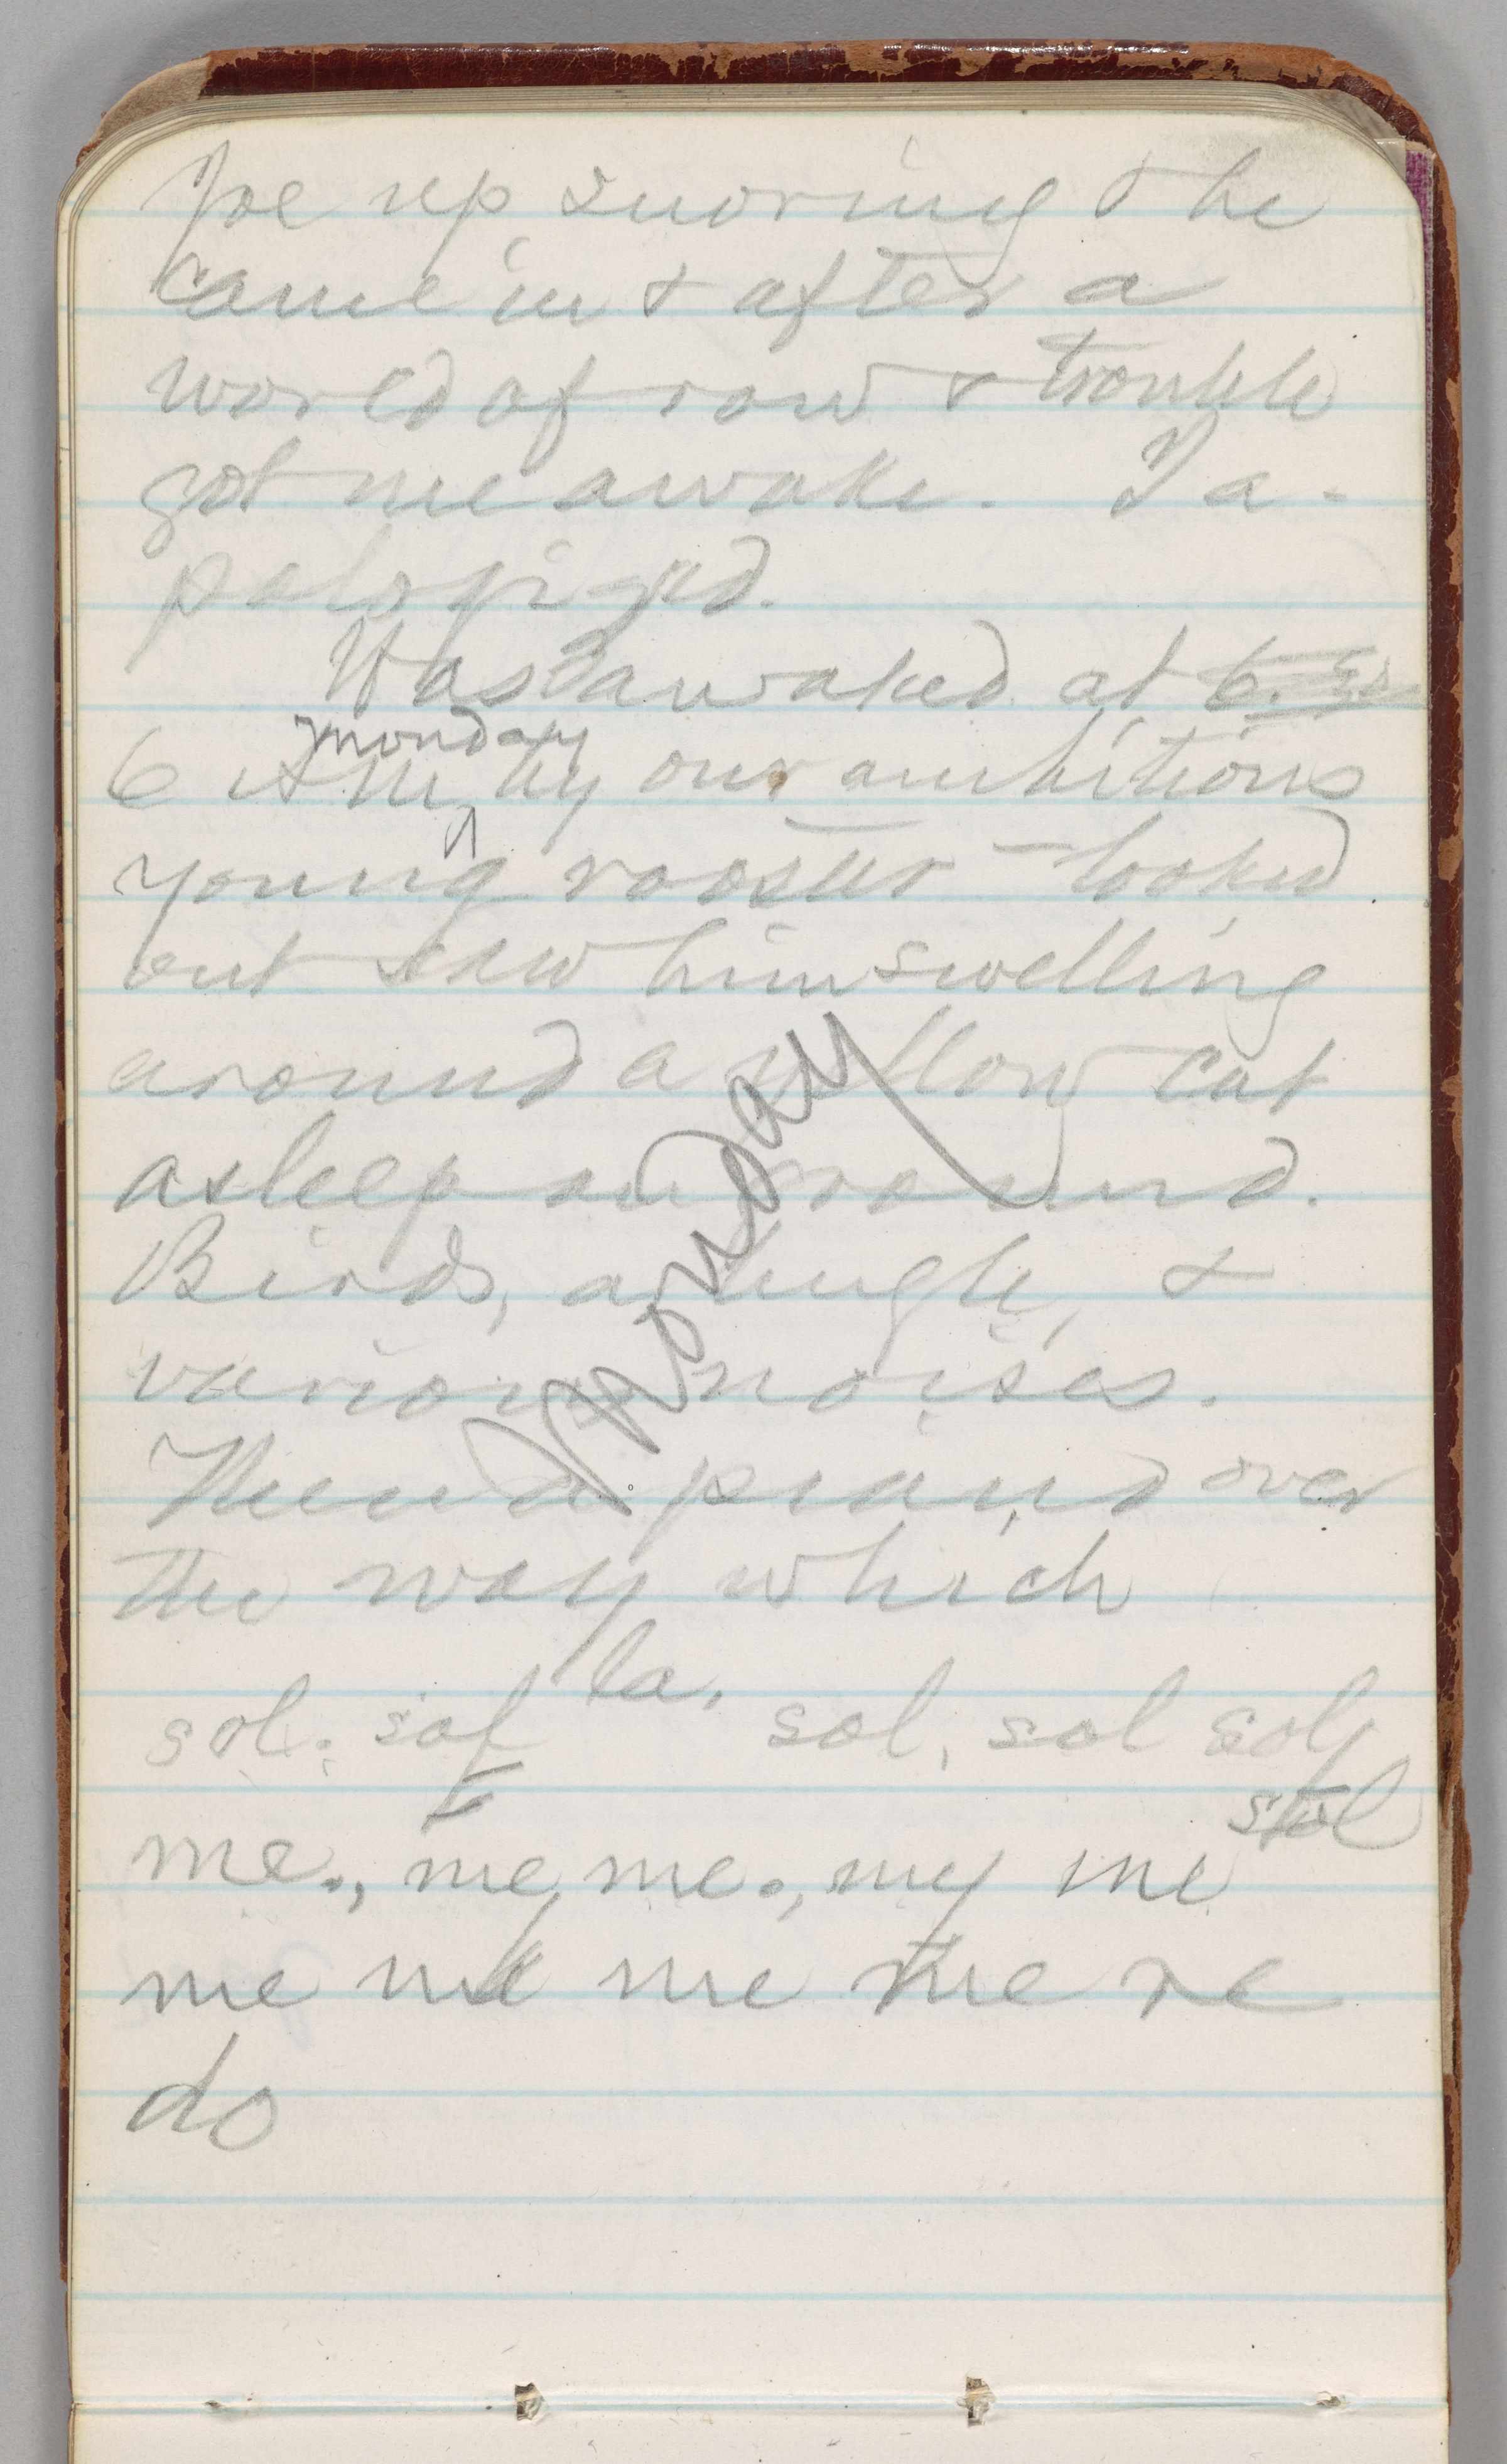 Joe up snoring & he
came in & after a
world of row & trouble
got me awake. I a-
pologized.
Was awaked at 6.
Monday
6 AM, by our ambitious
young rooster — looked
out saw him swelling
around a yellow cat
asleep on ground.
Birds, a bugle, &
various noises.
Then a piano over
the way which
la,
sol. sol sol, sol sol
sol
me., me, me., my me
me me me me re
do
Monday